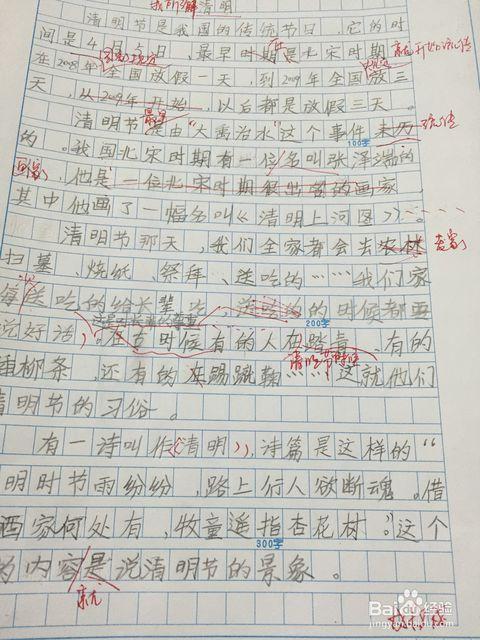 我所解清明
清明节是我国的传统节日,它的时
间是4月5日,最早时期是北宋时期 就开始流传
在2008年全国放假一天,到2009年全国放三
天,从2009年开始,以后都是放假三天。
清明节最早是由“大禹治水”这个事件来历 流传
100字
的。我国北宋时期有一位名叫张泽端的
画家,他是一位北宋时期很出名的画家,
其中他画了一幅名叫《清明上河图》。
清明节那天,我们全家都会去农林 老家
扫墓、烧纸、祭拜、送吃的……我们家
每送吃的给长辈吃,送吃的的时候都要
这是对长辈的尊重 200字
说好话。在古时候有的人在踏青、有的
清明节时候
插柳条,还有的在踢蹴鞠……这就他们
清明节的习俗。
有一诗叫作《清明》,诗篇是这样的“
明时节雨纷纷,路上行人欲断魂。借
酒家何处有,牧童遥指杏花村。”这个
300字
内容是说清明节的景象。
就
Baidu经验
jingyan.baidu.com